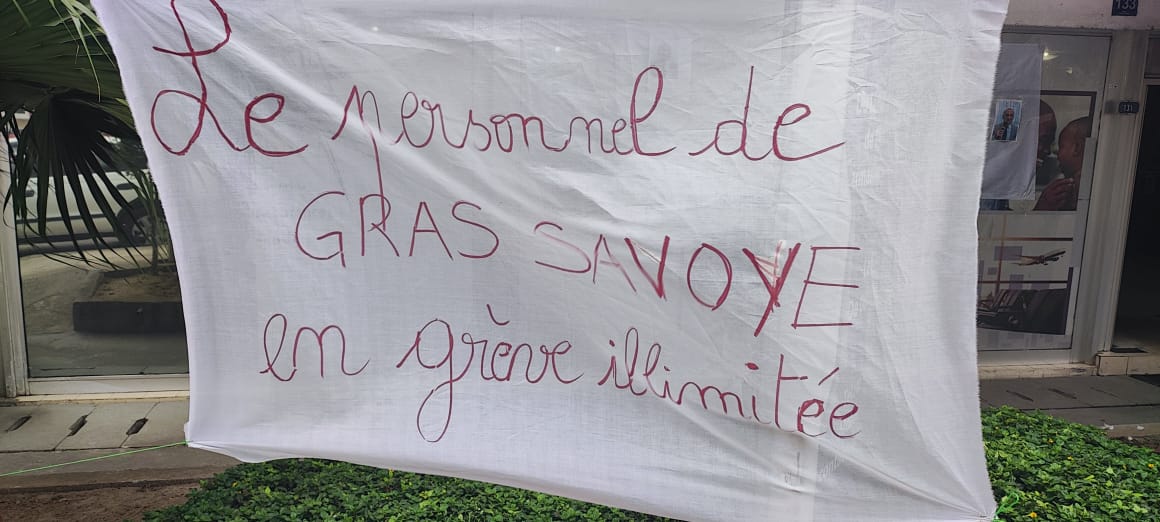 Le personnel de
GRAS SAVOYE
en grève illimitée
133
131